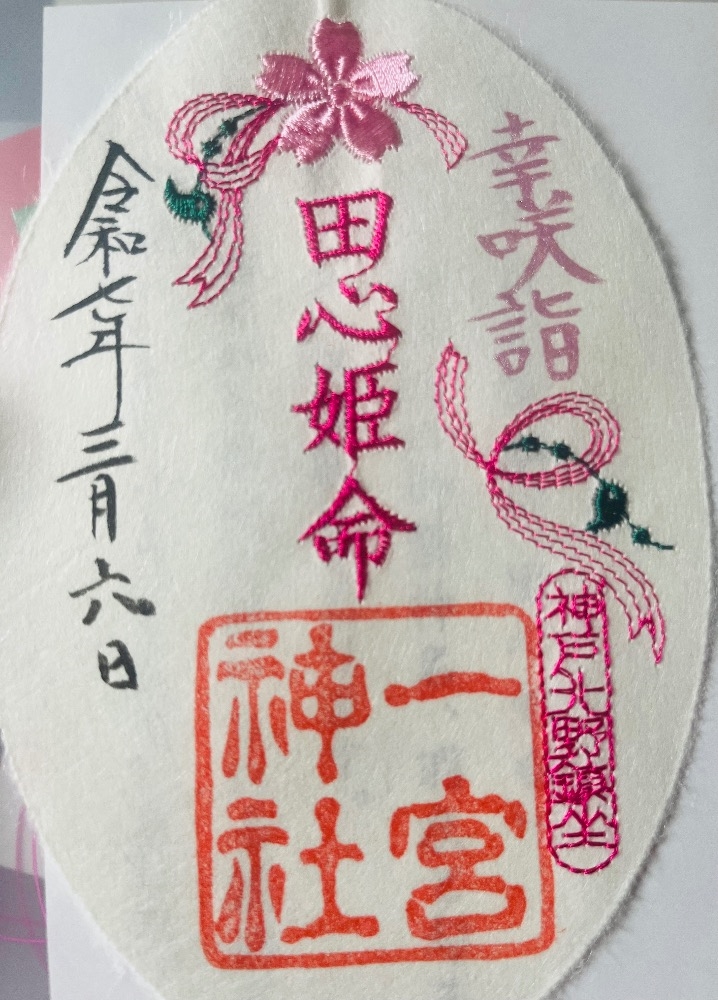 幸咲詣
神戸北野鎮坐
田心姫命
一宮
神社
令和七年三月六日